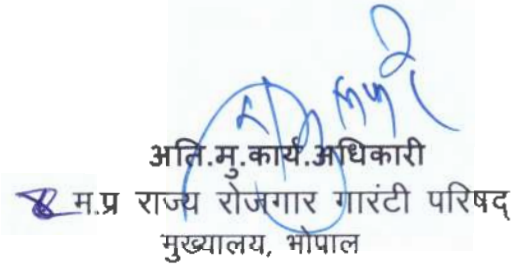 अति.मु.कार्य.अधिकारी
म.प्र राज्य रोजगार गारंटी परिषद्
मुख्यालय, भोपाल